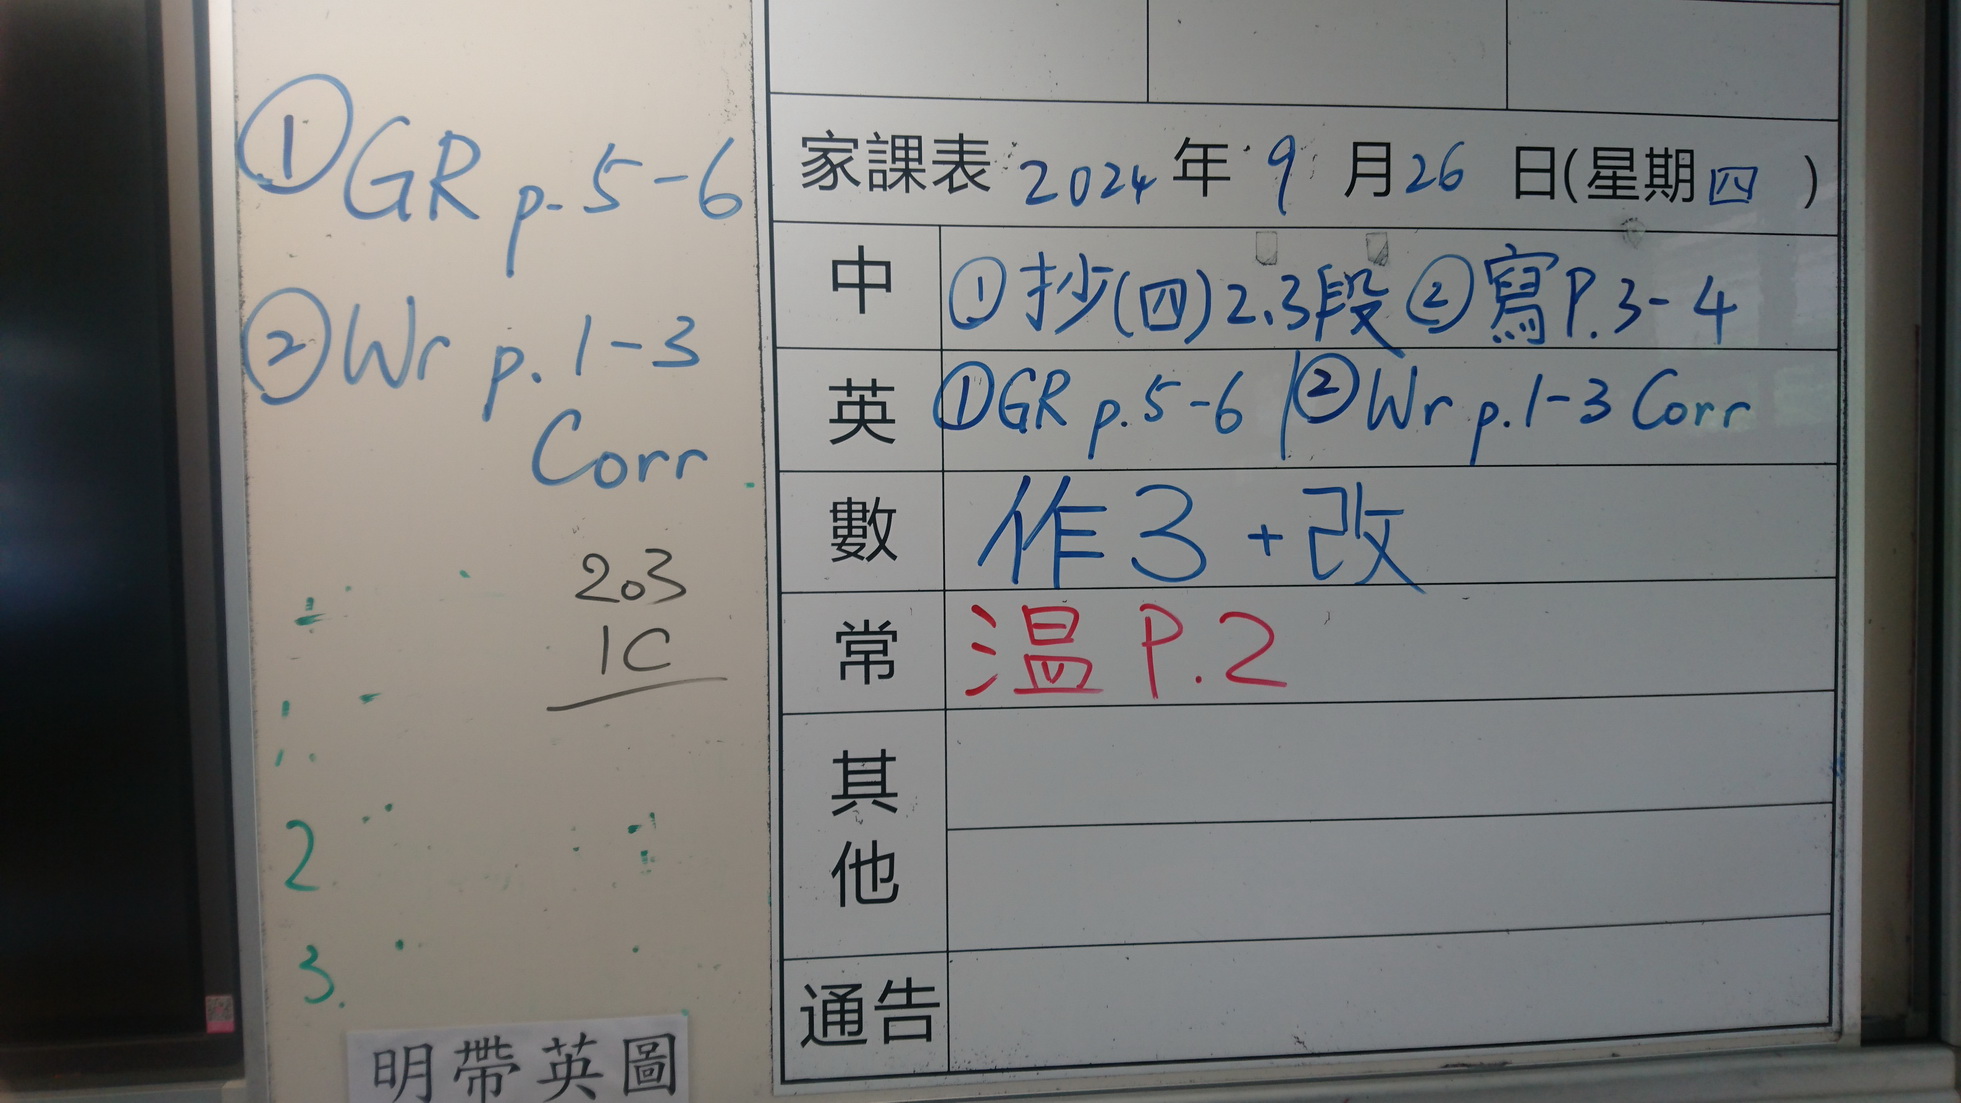 ① GR p. 5-6
② Wr p. 1-3
Corr
203
1C
2
3.
明帶英圖
家課表 2024 年 9 月 26 日(星期四)
中 ①抄(四)2.3段 ②寫P.3-4
英 ①GR p.5-6 ②Wr p.1-3 Corr
數 作3+改
常 温 P.2
其他
通告